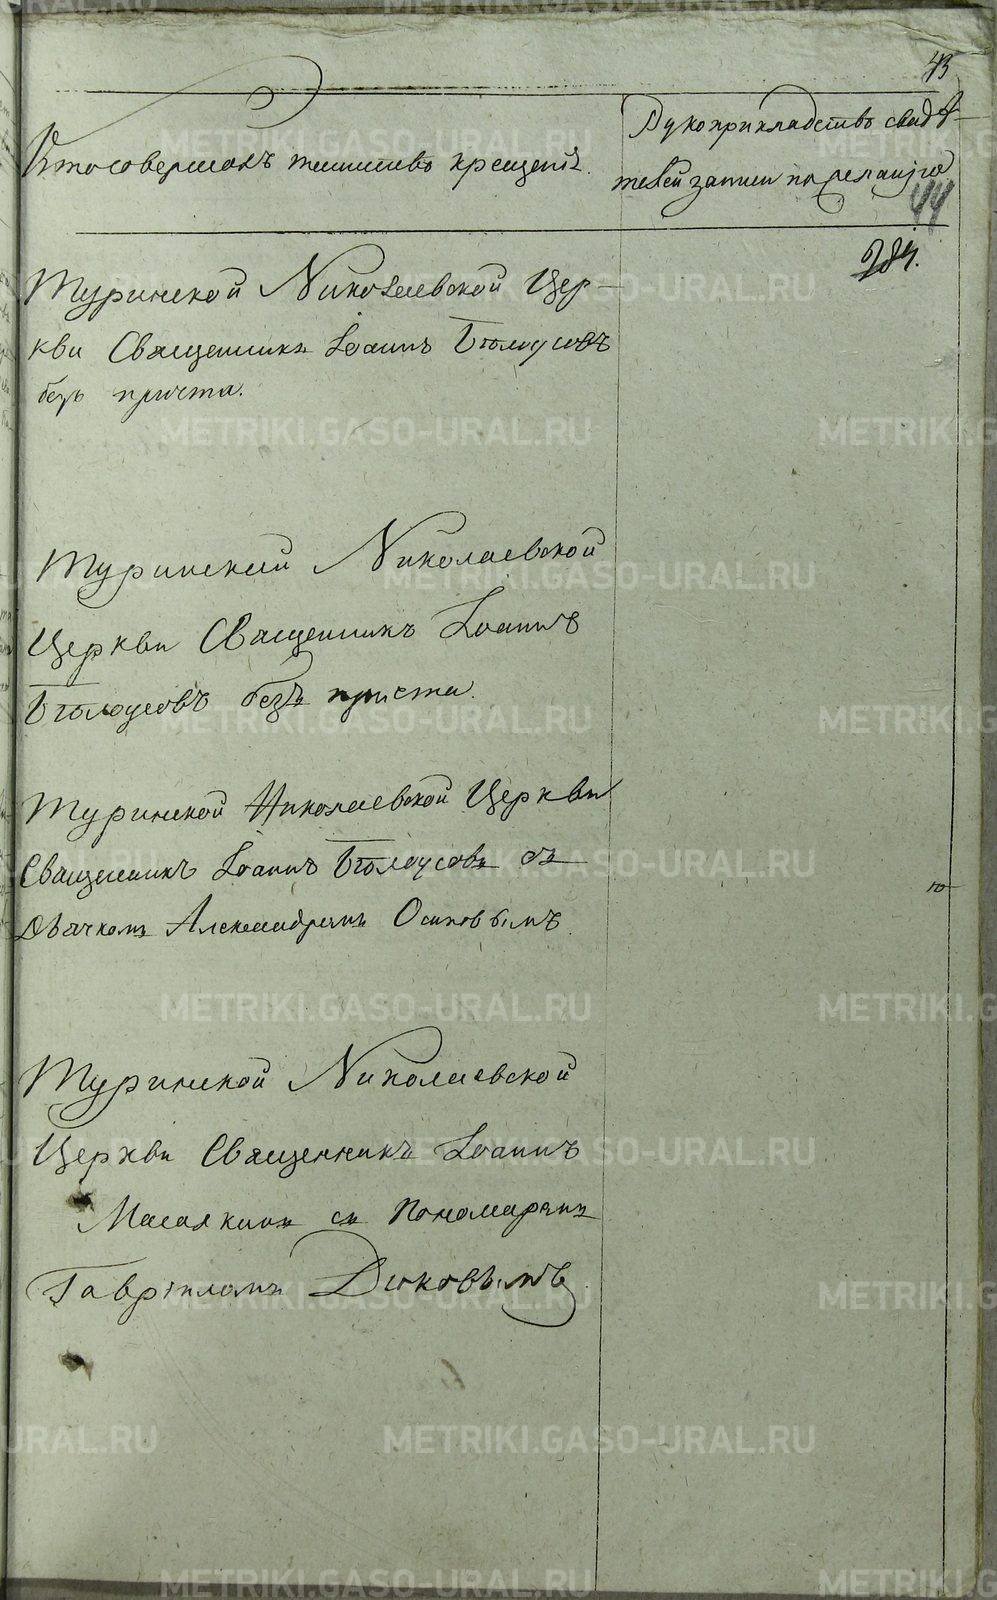 43
Кто совершалъ таинство крещенія.
Рукоприкладство свидѣ-
телей записи по желанію
44
284.
Туринской Николаевской Цер-
кви Священникъ Іоаннъ Бѣлоусовъ
безъ причта.
Туринской Николаевской
Церкви Священникъ Іоаннъ
Бѣлоусовъ безъ причта.
Туринской Николаевской Церкви
Священникъ Іоаннъ Бѣлоусовъ съ
Дьячкомъ Александромъ Осиповымъ.
Туринской Николаевской
Церкви Священникъ Іоаннъ
съ Пономаремъ
Гавріиломъ
METRIKI.GASO-URAL.RU